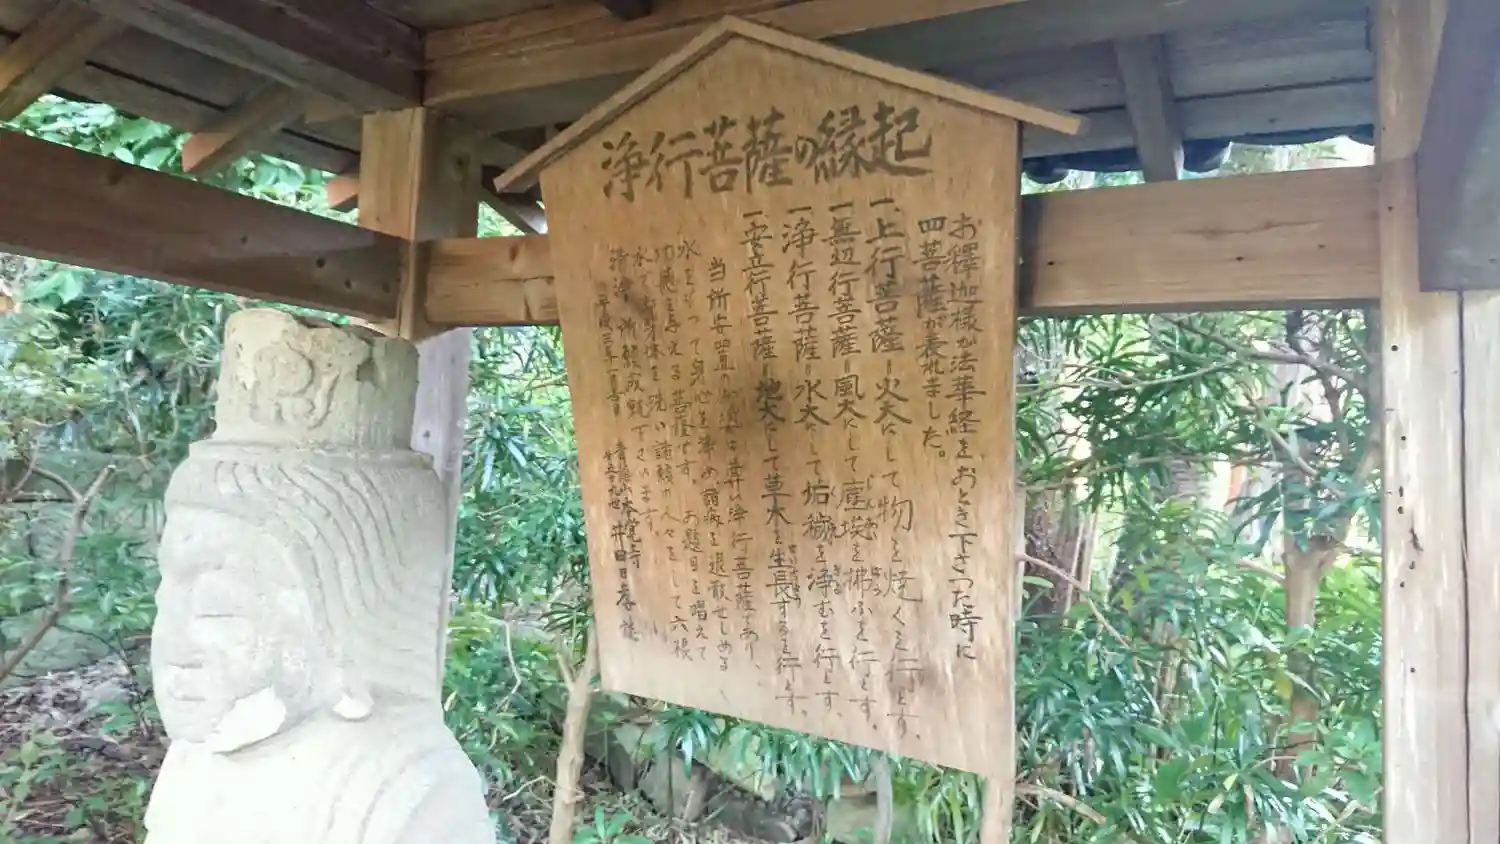 浄行菩薩の縁起
お釋迦様が法華経をおとき下さった時に
四菩薩が表れました。
一、上行菩薩=火大にして物を焼くを行とす。
一無辺行菩薩=風大にして塵埃を拂ふを行とす。
一浄行菩薩=水大にして垢穢を浄むを行とす。
一安立行菩薩=地大にして草木を生長するを行とす。
当所安置の は尊い浄行菩薩であり、
水をそそって身心を浄め諸病を退散せしめる
功徳を与える菩薩です。お題目を唱えて
水で御身体を洗い諸願の人々をして六根
清浄 祈願成就下さいます。
平成三年一月吉日 本覚寺
井田日孝